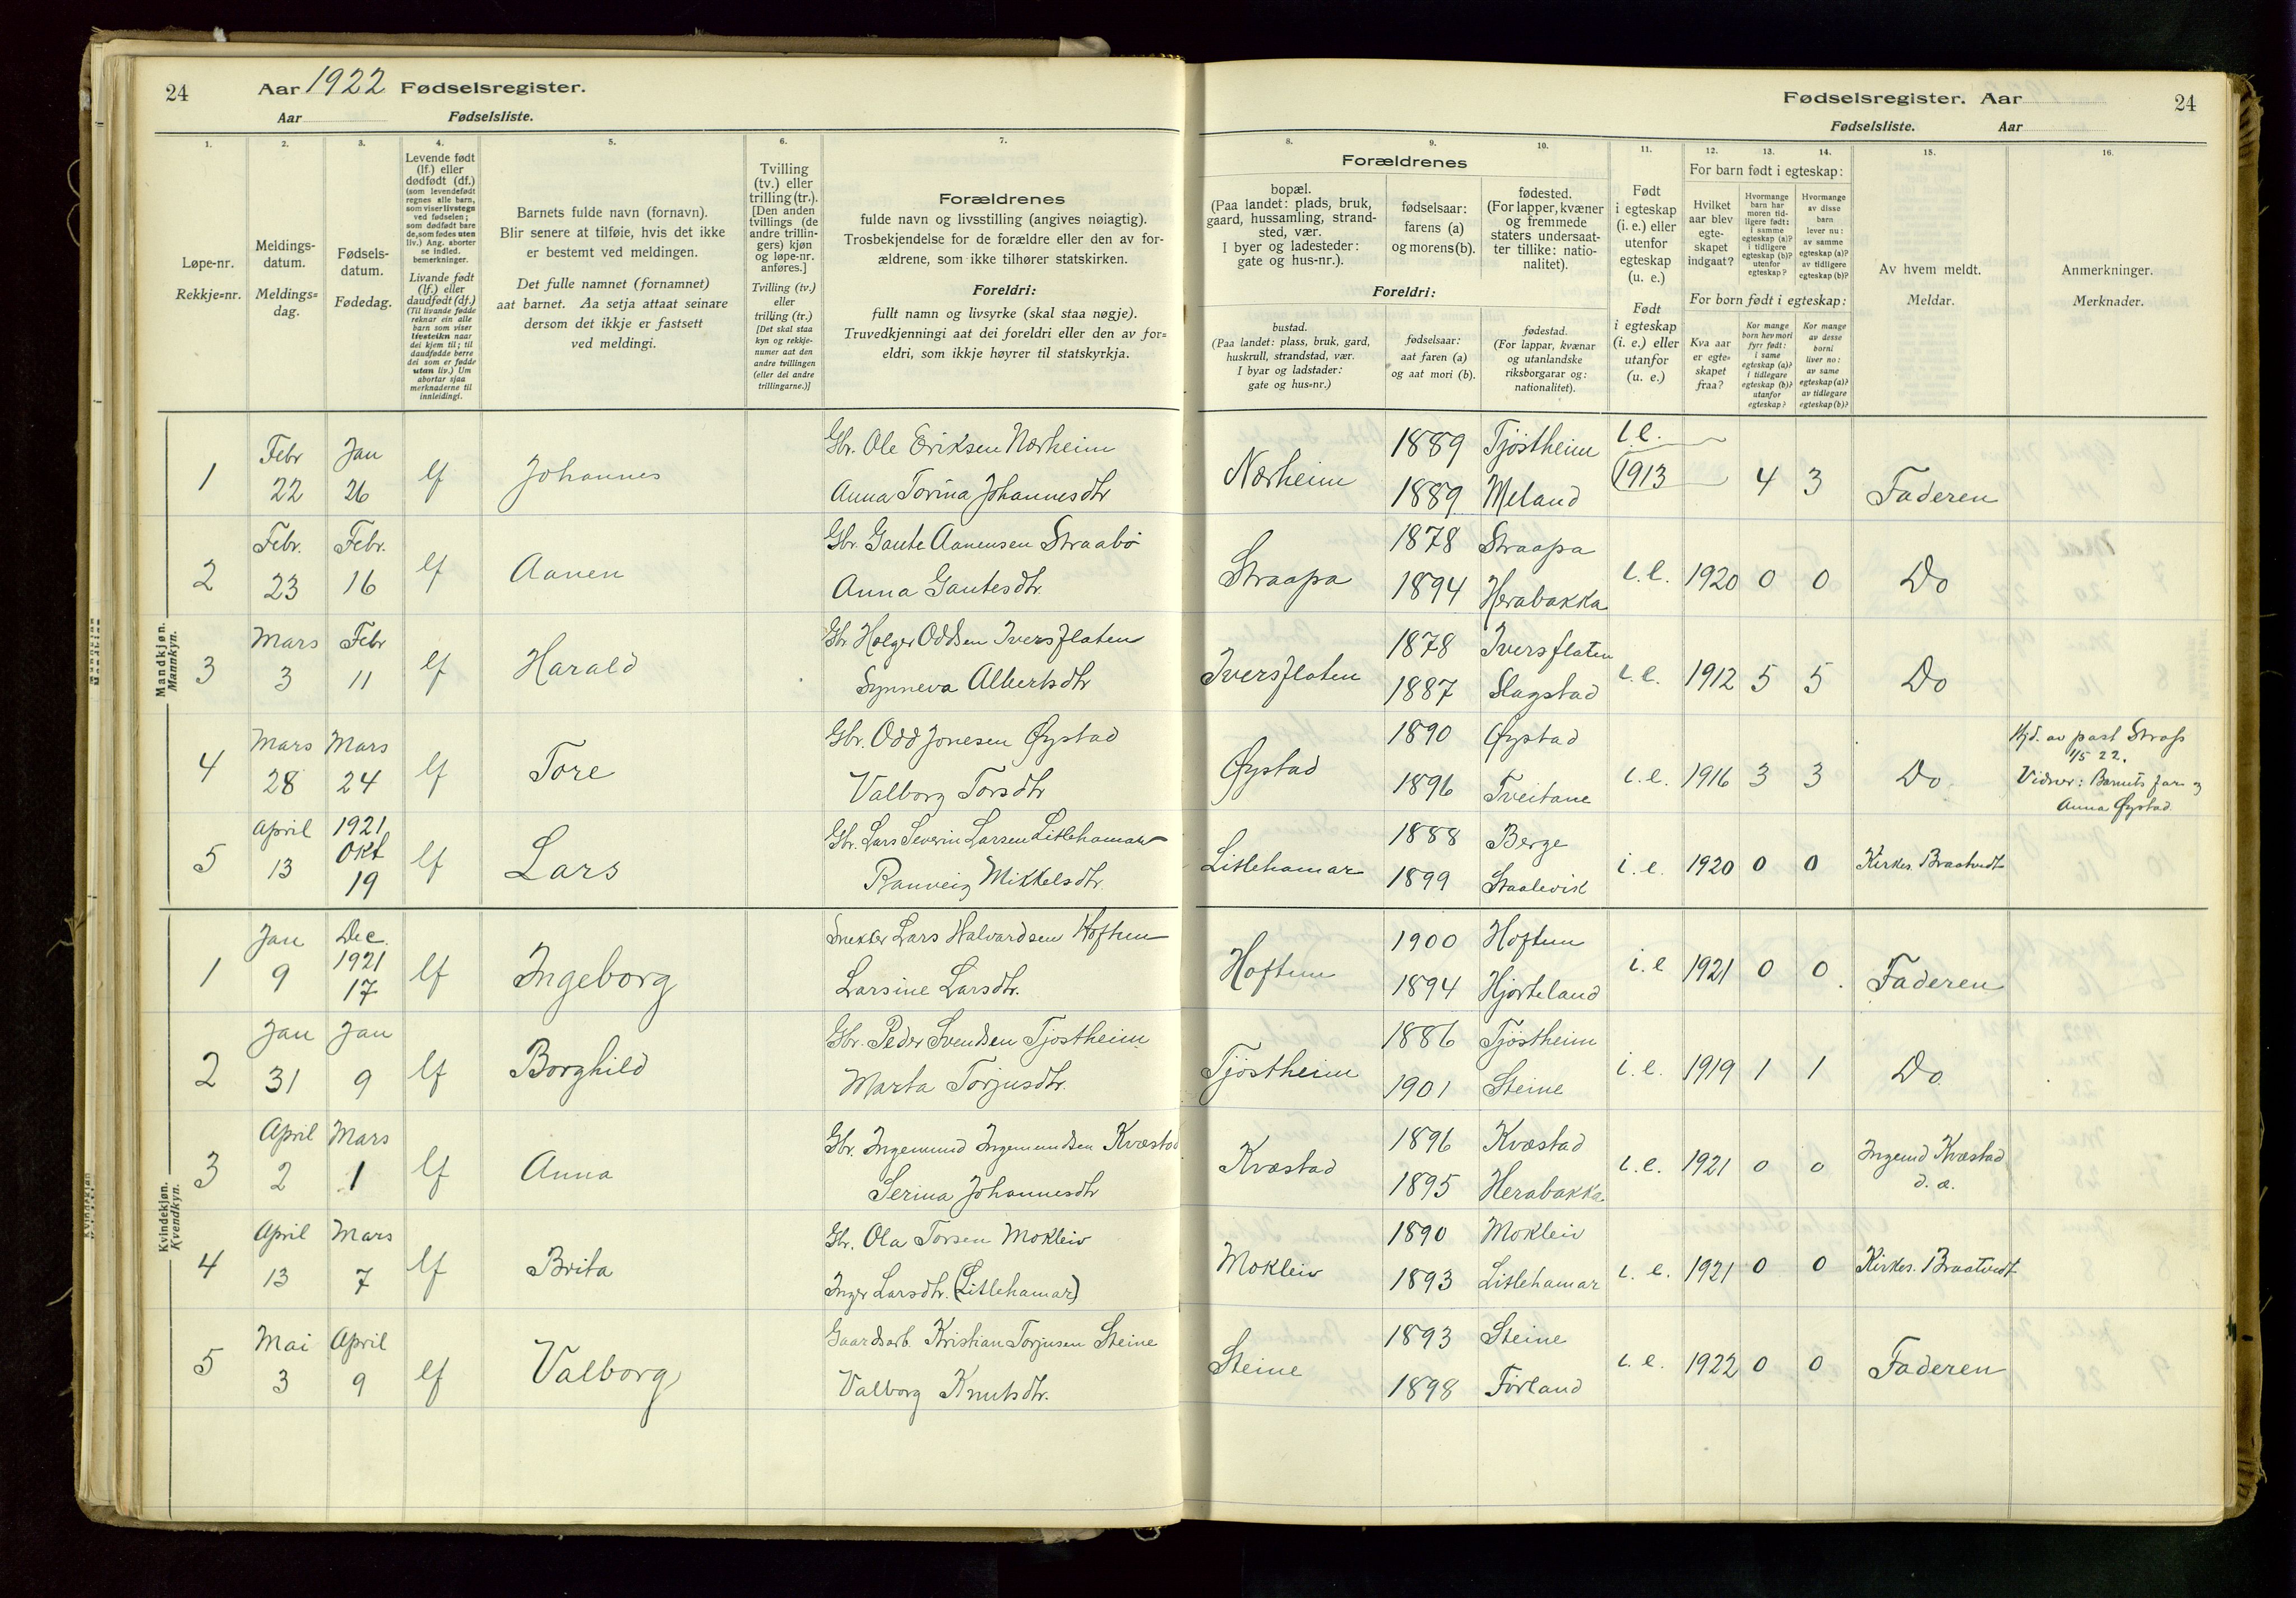 24
Aar 1922 Fødselsregister.
Aar Fødselsliste.
1.
2.
3.
4.
5.
6.
7.
Løpe-nr.
Rekkje=nr.
Meldings-
datum.
Meldings=
dag.
Fødsels-
datum.
Fødedag.
Levende født
(lf.) eller
dødfødt (df.)
(som levendefødt
regnes alle barn,
som viser livstegn
ved fødselen;
som dødfødt bare
de, som fødes uten
liv.) Ang. aborter
se indled.
bemerkninger.
Livande født
(lf.) eller
daudfødt (df.)
(Til livande fødde
reknar ein alle
barn som viser
livsteikn naar
dei kjem til; til
daudfødde berre
dei som er fødde
utan liv.) Um
abortar sjaa
merknaderne til
innleidingi.
Barnets fulde navn (fornavn).
Blir senere at tilføie, hvis det ikke
er bestemt ved meldingen.
Det fulle namnet (fornamnet)
aat barnet. Aa setja attaat seinare
dersom det ikkje er fastsett
ved meldingi.
Tvilling
(tv.) eller
trilling (tr.).
[Den anden
tvillings (de
andre trillin-
gers) kjøn
og løpe-nr.
anføres.]
Tvilling (tv.)
eller
trilling (tr.)
[Det skal staa
kyn og rekkje-
numer aat den
andre tvillingen
(eller dei andre
trillingarne.)]
Forældrenes
fulde navn og livsstilling (angives nøiagtig).
Trosbekjendelse for de forældre eller den av for-
ældrene, som ikke tilhører statskirken.
Foreldri:
fullt namn og livsyrke (skal staa nøgje).
Truvedkjenningi aat dei foreldri eller den av for=
eldri, som ikkje høyrer til statskyrkja.
Mandkjøn.
Mannkyn.
1
Febr
22
Jan
26
lf
Johannes
Gbr. Ole Eriksen Nærheim
Anna Torina Johannesdtr
2
Febr.
23
Febr.
16
lf
Aanen
Gbr. Gaute Aanensen Straabø
Anna Gautesdtr.
3
Mars
3
Febr
11
lf
Harald
Gbr Holger Oddsen Iversflaten
Synneva Albertsdtr
4
Mars
28
Mars
24
lf
Tore
Gbr. Odd Jonesen Øystad
Valborg Torsdtr
5
April
13
1921
Okt
19
lf
Lars
Gbr. Lars Severin Larsen Litlehamar
Ranveig Mikkelsdtr.
Kvindekjøn.
Kvendkyn.
1
Jan
9
Dec.
1921
17
lf
Ingeborg
Snekker Lars Halvardsen Hoftun
Larsine Larsdtr.
2
Jan
31
Jan
9
lf
Borghild
Gbr. Peder Svendsen Tjøstheim
Marta Torjusdtr.
3
April
2
Mars
1
lf
Anna
Gbr. Ingemund Ingemundsen Kvæstad
Serina Johannesdtr
4
April
13
Mars
7
lf
Brita
Gbr. Ola Torsen Mokleiv
Inger Larsdtr. (Litlehamar)
5
Mai
3
April
9
lf
Valborg
Gaardsarb. Kristian Torjusen Steine
Valborg Knutsdtr.
Fødselsregister. Aar
24
Fødselsliste. Aar
8.
9.
10.
11.
12.
13.
14.
15.
16.
Forældrenes
bopæl.
(Paa landet: plads, bruk,
gaard, hussamling, strand-
sted, vær.
I byer og ladesteder:
gate og hus-nr.).
fødselsaar:
farens (a)
og morens (b).
fødested.
(For lapper, kvæner
og fremmede
staters undersaat-
ter tillike: natio-
nalitet).
Foreldri:
bustad.
(Paa landet: plass, bruk, gard,
huskrull, strandstad, vær.
I byar og ladstader:
gate og hus=nr.)
fødselsaar:
aat faren (a)
og aat mori (b).
fødestad.
(For lappar, kvænar
og utanlandske
riksborgarar og:
nationalitet).
Født
i egteskap
(i. e.) eller
utenfor
egteskap
(u. e.)
Født
i egteskap
(i. e.) eller
utanfor
(u. e.)
For barn født i egteskap:
Hvilket
aar blev
egte-
skapet
indgaat?
Hvormange
barn har
moren tid-
ligere født:
i samme
egteskap (a)?
i tidligere
egteskap (b)?
utenfor
egteskap?
Hvormange
av disse
barn
lever nu:
av samme
egteskap (a)?
av tidligere
egteskap (b)?
For born født i egteskap:
Kva aar
er egte=
skapet
fraa?
Kor mange
born hev mori
fyrr født:
i same
egteskap (a)?
i tidlegare
egteskap (b)?
utanfor
egteskap?
Kor mange
av desse
borni
liver no:
av same
egteskap (a)?
av tidlegare
egteskap (b)?
Av hvem meldt.
Meldar.
Anmerkninger.
Merknader.
Nærheim
1889 Tjøstheim
1889 Meland
i e.
1913
4
3
Faderen
Straapa
1878 Straapa
1894 Herabakka
i. e.
1920
0
0
Do
Iversflaten
1878 Iversflaten
1887 Slagstad
i. e.
1912
5
5
Do
Øystad
1890 Øystad
1896 Tveitane
i. e.
1916
3
3
Do
Hjd. av past Strass
1/5 22.
Vidner: Barnets far og
Anna Øystad
Litlehamar
1888 Berge
1899 Staalevik
i. e.
1920
0
0
Kirkes. Braatvedt
Hoftun
1900 Hoftun
1894 Hjorteland
i. e
1921
0
0
Faderen
Tjøstheim
1886 Tjøstheim
1901 Steine
i. e.
1919
1
1
Do
Kvæstad
1896 Kvæstad
1895 Herabakka
i. e.
1921
0
0
Ingemd Kvæstad
d. æ.
Mokleiv
1890 Mokleiv
1893 Litlehamar
i. e.
1921
0
0
Kirkes. Braatvedt
Steine
1893 Steine
1898 Førland
i. e.
1922
0
0
Faderen